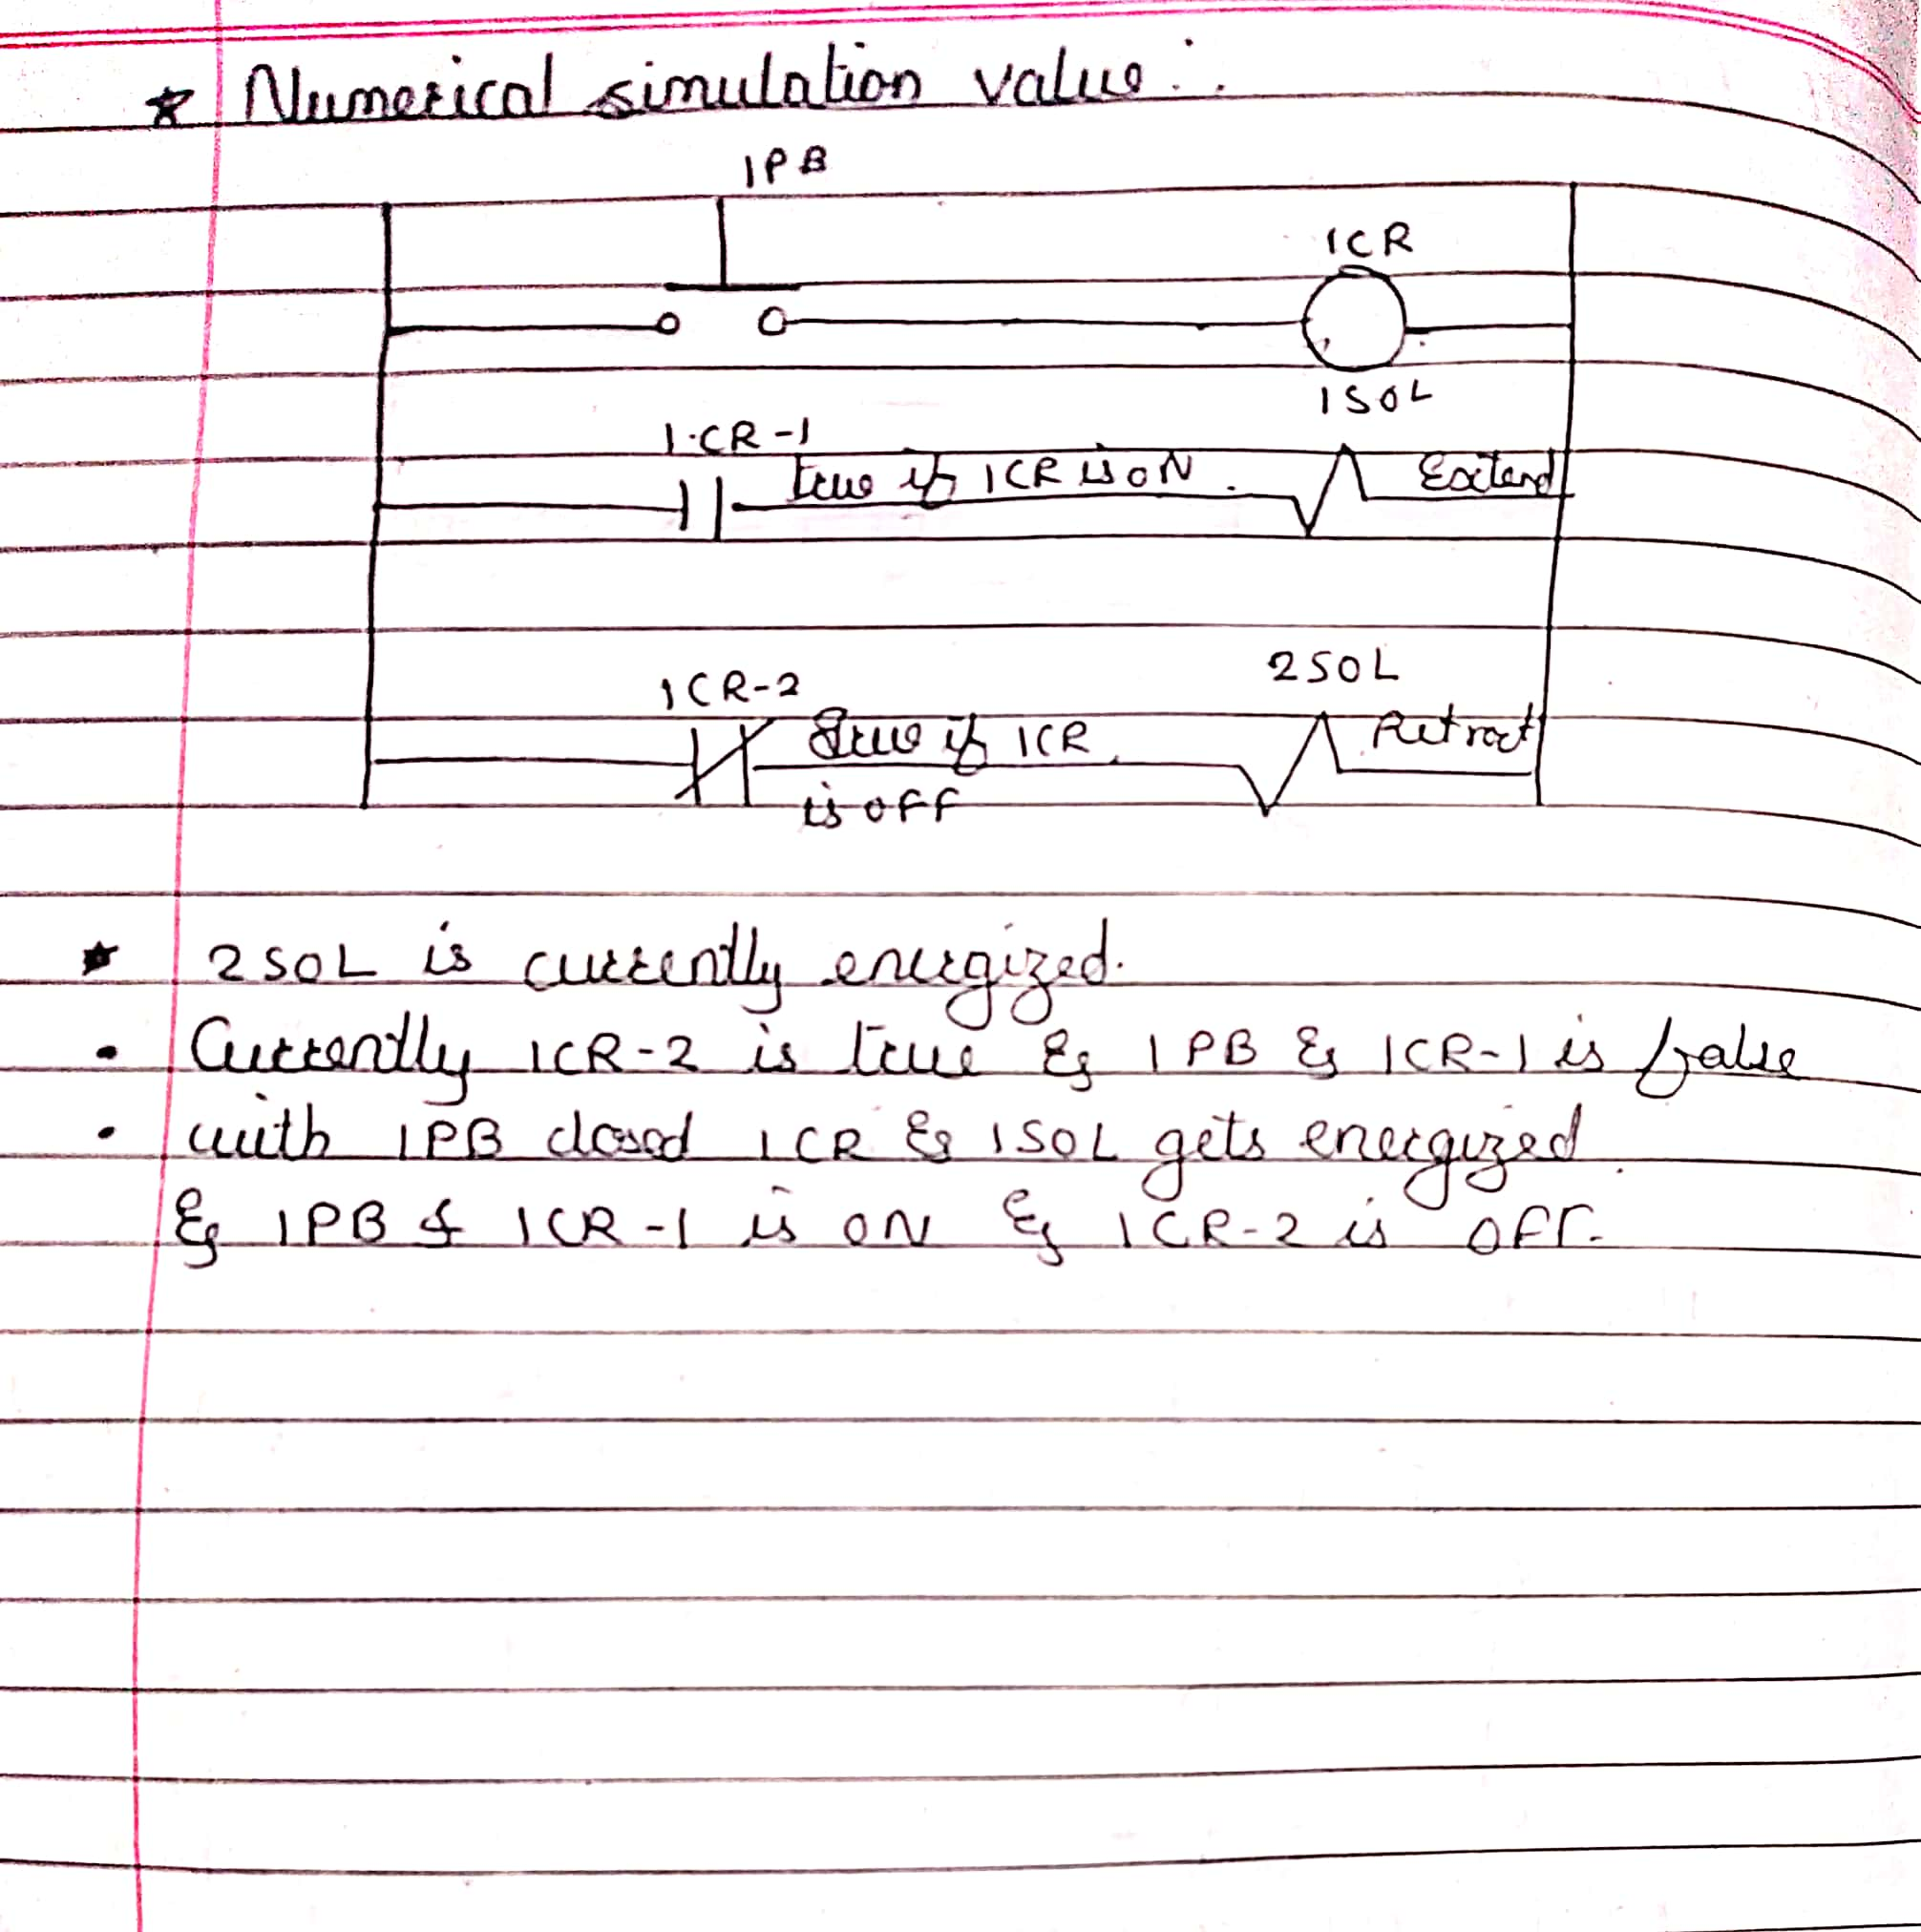 * Numerical simulation value :.
1PB
1CR
1SOL
1.CR-1
true if 1CR is ON. Extend
2SOL
1CR-2
true if 1CR. Retract
is OFF
* 2SOL is currently energized.
• Currently 1CR-2 is true & 1PB & 1CR-1 is false
• with 1PB closed 1CR & 1SOL gets energized
& 1PB & 1CR-1 is ON & 1CR-2 is OFF.